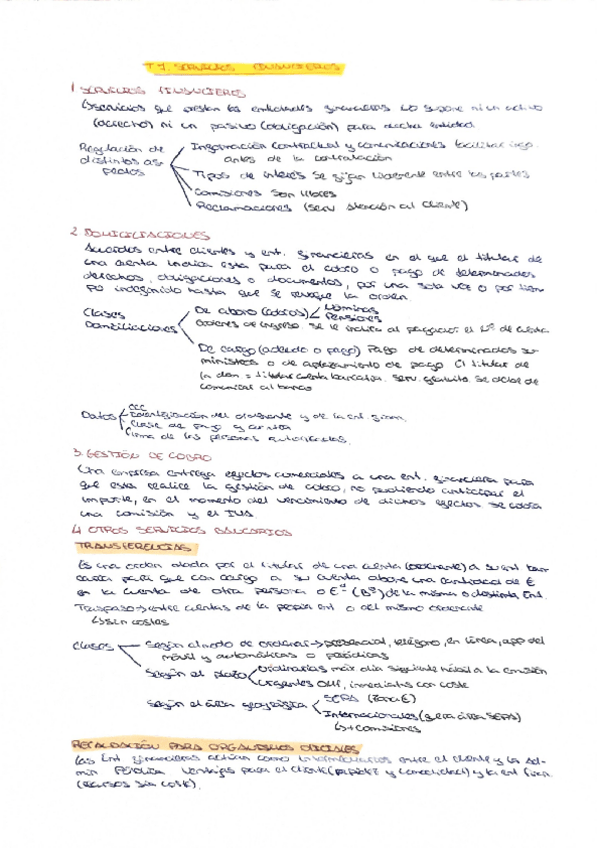 T7. SERVICIOS FINANCIEROS
1 SERVICIOS FINANCIEROS
↳ servicios que prestan las entidades financieras NO supone ni un activo
(derecho) ni un pasivo (obligación) para dicha entidad.
Regulación de distintos aspectos
Información contractual y comunicaciones facilitar info.
antes de la contratación
Tipos de interés se fijan libremente entre las partes
Comisiones son libres
Reclamaciones (serv atención al cliente)
2 DOMICILIACIONES
Acuerdos entre clientes y ent. financieras en el que el titular de
una cuenta indica esta para el cobro o pago de determinados
derechos, obligaciones o documentos, por una sola vez o por tiem
po indefinido hasta que se revoque la orden.
Clases Domiciliaciones
De abono (cobros) Nóminas
Pensiones
órdenes de ingreso se le indica al pagador el Nº de cuenta
De cargo (adeudo o pago) Pago de determinados su-
ministros o de aplazamiento de pago El titular de
titular cuenta bancaria. serv. gratuito se debe de
comunicar al banco
Datos
CCC
Identificación del ordenante y de la ent finan.
Clase de pago y cuantía
Firma de las personas autorizadas.
3. GESTIÓN DE COBRO
Una empresa entrega efectos comerciales a una ent. financiera para
que esta realice la gestión de cobro, no pudiendo anticipar el
importe, en el momento del vencimiento de dichos efectos se cobra
una comisión y el IVA.
4 OTROS SERVICIOS BANCARIOS
TRANSFERENCIAS
Es una orden dada por el titular de una cuenta (ordenante) a su ent ban
caria para que con cargo a su cuenta abone una cantidad de €
en la cuenta de otra persona o (Bº) de la misma o distinta Ent.
Traspaso → entre cuentas de la propia ent o del mismo ordenante
↳ Sin costes
Clases
Según el modo de ordenar → presencial, teléfono, en línea, app del
móvil y automáticas o periódicas
Según el plazo Ordinarias máx día siguiente hábil a la emisión
Urgentes OMF, inmediatas con coste
Según el área geográfica SEPA (zona €)
Internacionales (fuera área SEPA)
↳ + comisiones
RECAUDACIÓN PARA ORGANISMOS OFICIALES
Las Ent financieras actúan como intermediarios entre el cliente y la Ad-
min Pública Ventajas para el cliente (rapidez y comodidad) y la ent finan.
(recursos sin coste).